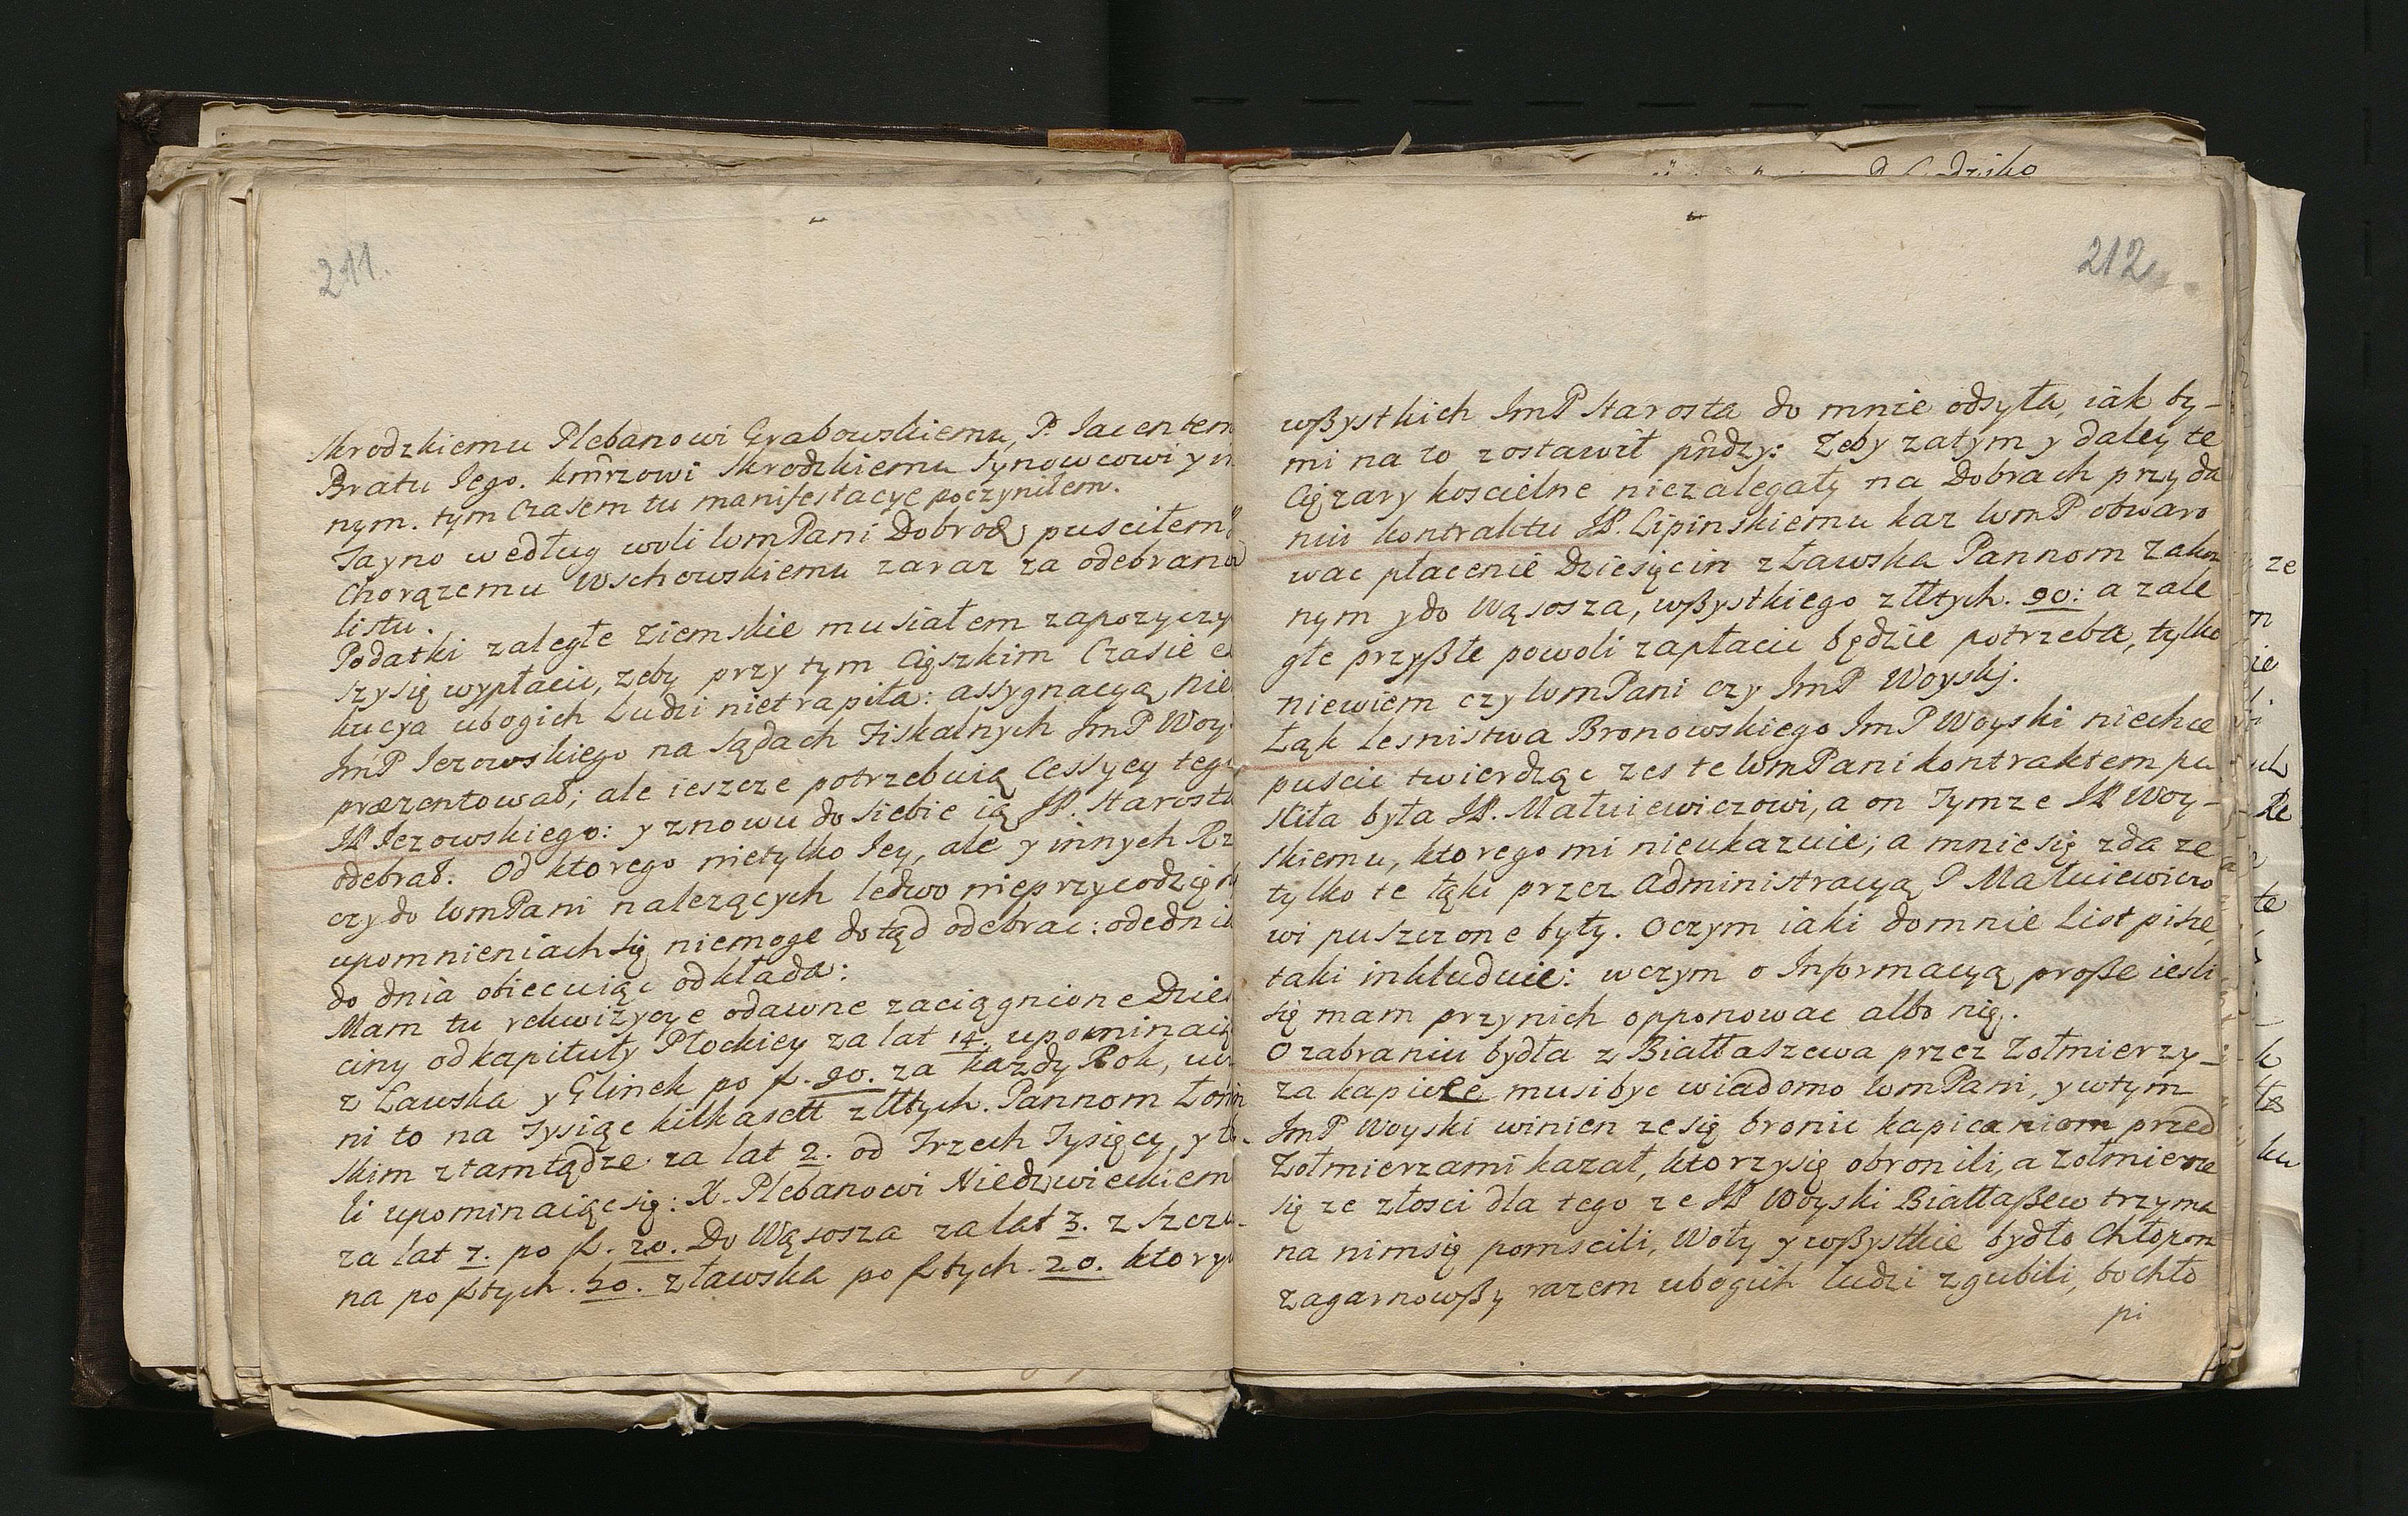 211.
Skrodzkiemu Plebanowi Grabowskiemu, P. Jacentem
Bratu Jego. kmrzowi Skrodzkiemu Synowcowi y in
nym. tym Czasem tu manifestacye poczyniłem.
Tayno według woli IomPani Dobrod puscilem
Chorązemu Wschowskiemu zaraz za odebrano
listu.
Podatki zaległe ziemskie musiałem zapozyczy
szysię wypłacic, zeby przy tym Cięszkim Czasie ex
kucya ubogich Ludzi nietrapiła: assygnacyą nie
ImP Jezowskiego na sądach Fiskalnych ImP Woy
præzentował; ale ieszcze potrzebuią Cessyey tego
JP Jezowskiego: y znowu do siebie ią JP. Starosta
odebrał. Od ktorego nietylko Jey, ale y innych Rze
czy do IomPani nalezących ledwo nieprzycodzię
upomnieniach się niemoge dotąd odebrac: odednia
do dnia obiecuiąc odkłada:
Mam tu rekwizycye odawne zaciągnione Dzie
ciny od kapituły Płockiey za lat 14. upominaią
z Ławska y Glinek po f. 90. za kazdy Rok, uc
ni to na Tysiąc kilkasett złłtych. Pannom Łom
skim ztamtądze za lat 2. od Trzech Tysięcy, y to
li upominaiąc się: X. Plebanowi Niedzwieckiem
za lat 7. po f. 20. Do Wąsosza za lat 3. z Szczu
na po fłtych. 50. z Ławska po fłtych. 20. ktory
212
wßystkich ImP Starosta do mnie odsyła, iak by-
mi na to zostawił pñdzy: Zeby zatym y daley te
Cięzary koscielne niezalegały na Dobrach przy da
niu kontraktu JP. Lipinskiemu kaz IomP obwaro
wac płacenie Dziesięcin z Ławska Pannom Zakon
nym y do Wąsosza, wßystkiego złłtych. 90: a zale
głe przyßłe powoli zapłacic będzie potrzeba, tylko
niewiem czy IomPani czy ImP Woyski.
Łąk Lesnistwa Bronowskiego ImP Woyski niechce
puscic twierdząc zes te IomPani kontraktem pu
sciła była JP. Małuiewiczowi, a on Tymze JP Woy-
skiemu, ktorego mi nieukazuie; a mnie się zda ze
tylko te łąki przez Administracyą P Małuiewiczo
wi puszczone były. Oczym iaki domnie List pisze,
taki inkluduie: wczym o Informacyą proße iesli
się mam przynich opponowac albo nię.
O zabraniu bydła z Białłaszewa przez Zołmierzy-
za kapice musi byc wiadomo IomPani, y wtym
ImP Woyski winien ze się bronic kapicaniom przed
Zołmierzami kazał, ktorzysię obronili, a zołmierze
się ze złosci dla tego ze JP Woyski Białłaßew trzyma
na nimsię pomscili, Woły y wßystkie bydło Chłopom
zagarnowßy razem ubogich ludzi zgubili, bo chło
pi